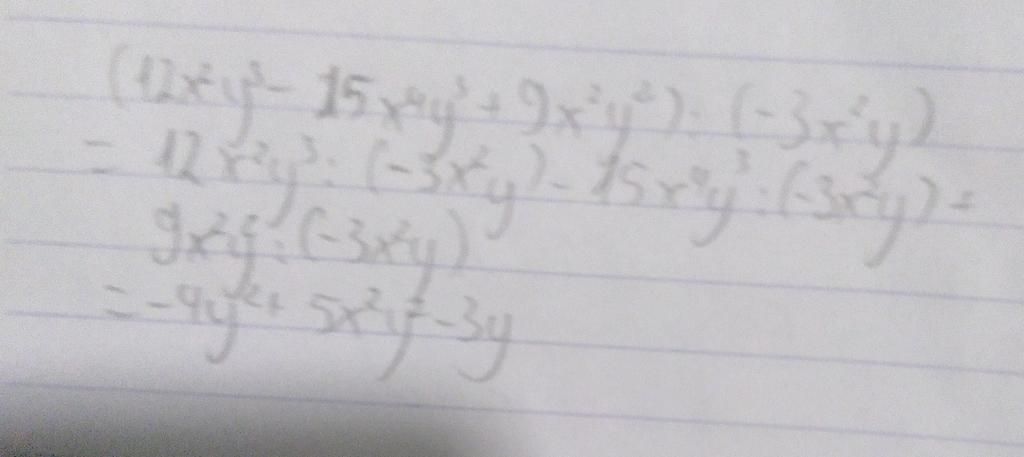 (12x²y³ - 15x⁴y³ + 9x²y²) : (-3x²y)
= 12x²y³ : (-3x²y) - 15x⁴y³ : (-3x²y) +
9x²y² : (-3x²y)
= -4y² + 5x²y² - 3y